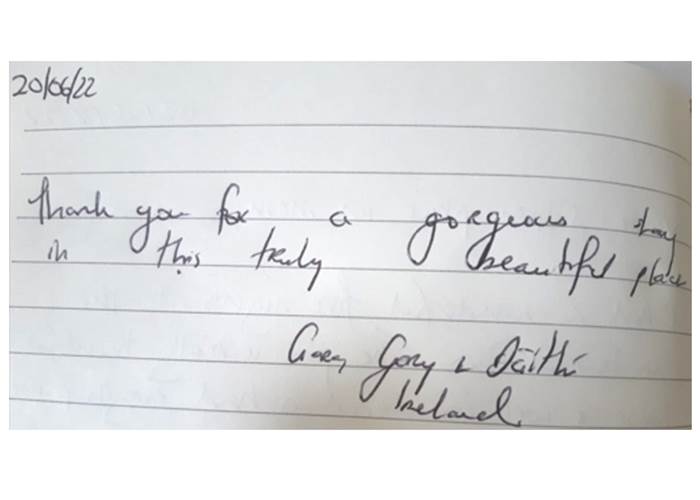 20/06/22
Thank you for a gorgeous stay
in this truly beautiful place
Gory & Dáithí
Ireland